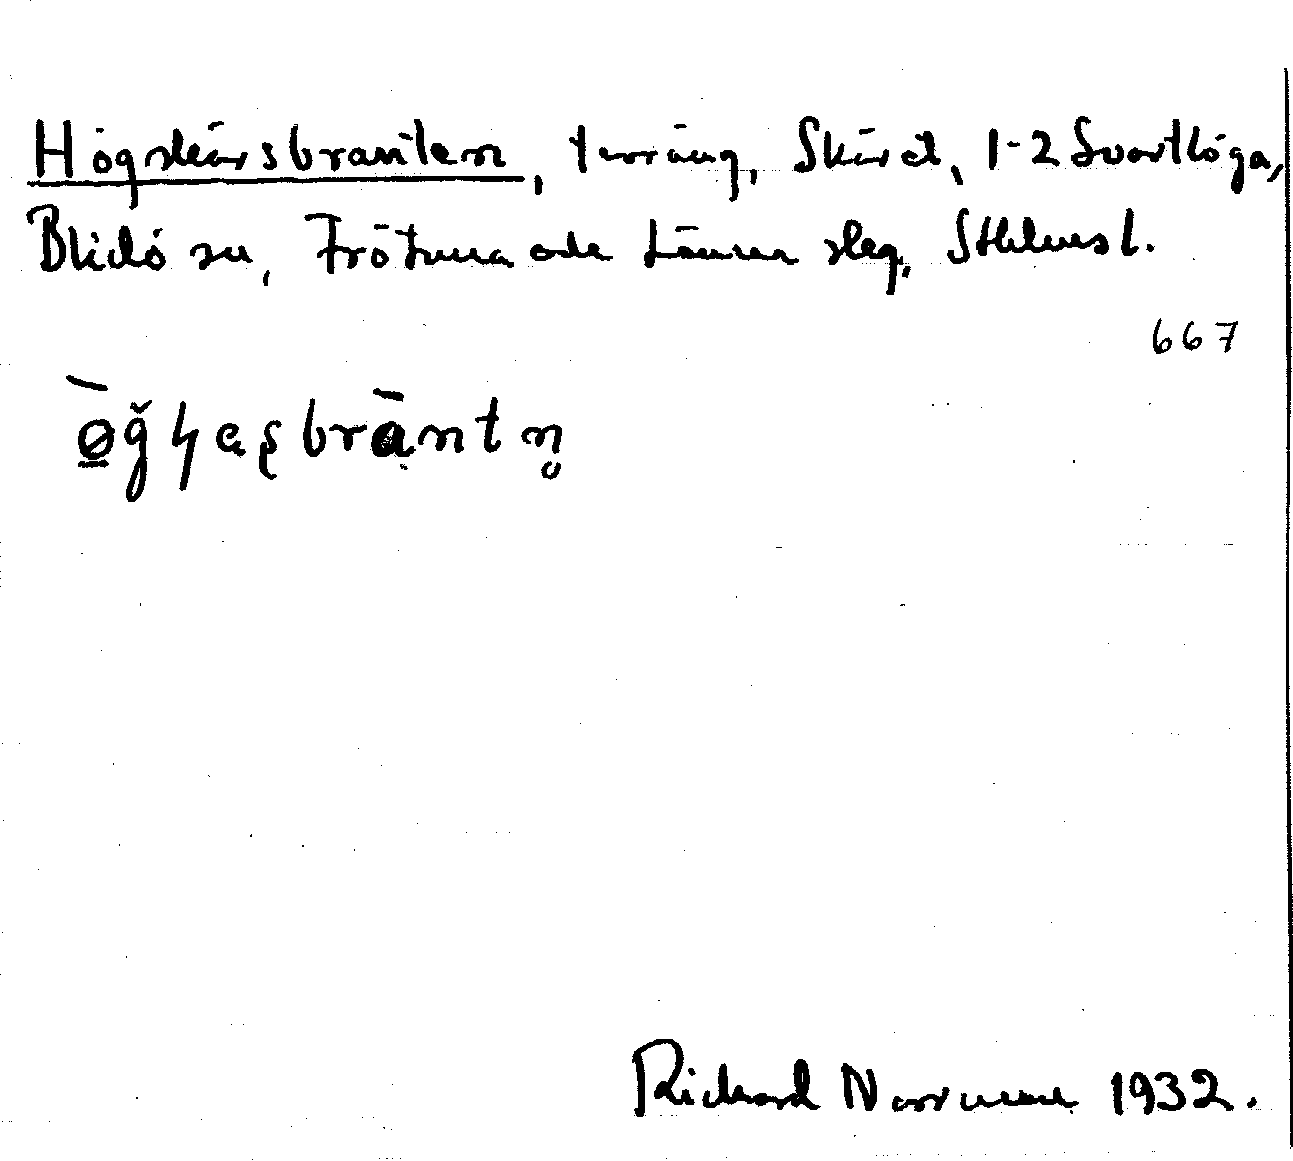 Högskärsbranten, terräng, Skäret, 1-2 Svartlöga,
Blidö sn, Frötuna och Länna slag, Sthlms l.
667
Rickard Norrman 1932.